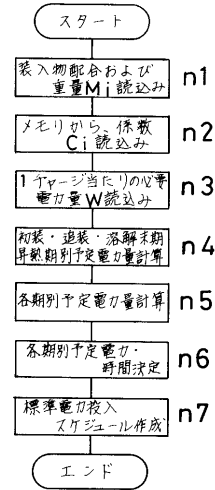 スタート
装入物配合および
重量Mi読込み
n1
メモリから、係数
Ci読込み
n2
1チャージ当たりの必要
電力量W読込み
n3
初装・追装・溶解末期
昇熱期別予定電力量計算
n4
各期別予定電力量計算
n5
各期別予定電力・
時間決定
n6
標準電力投入
スケジュール作成
n7
エンド